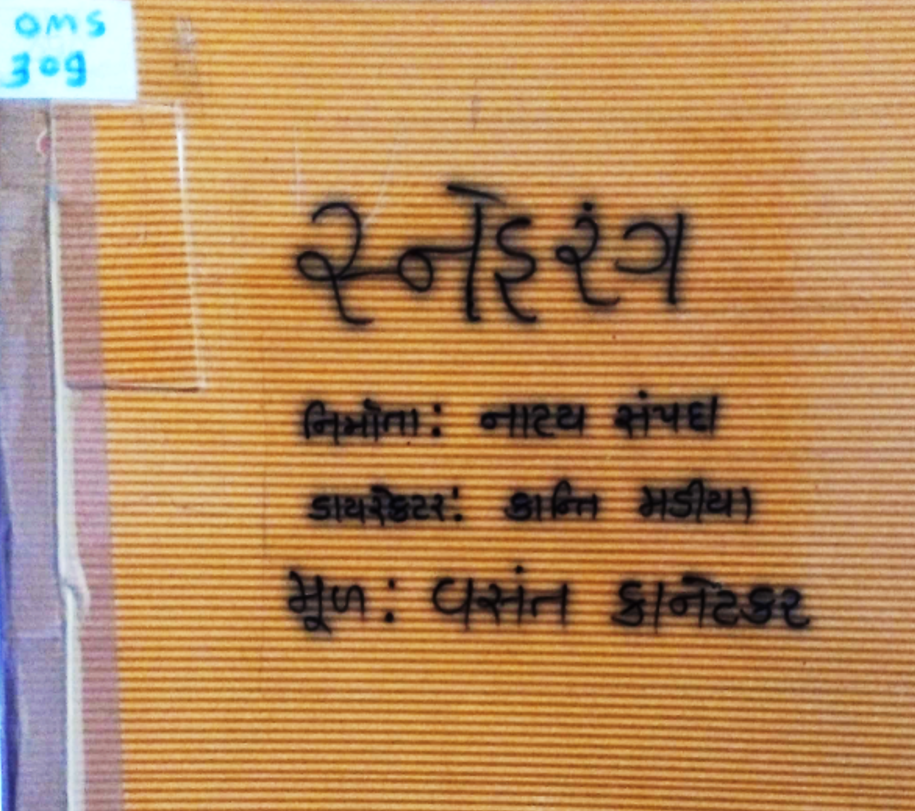 OMS
309
સ્નેહરંગ
નિર્માતા: નાટ્ય સંપદા
ડાયરેકટર: કાન્તિ મડીયા
મૂળ: વસંત કાનેટકર